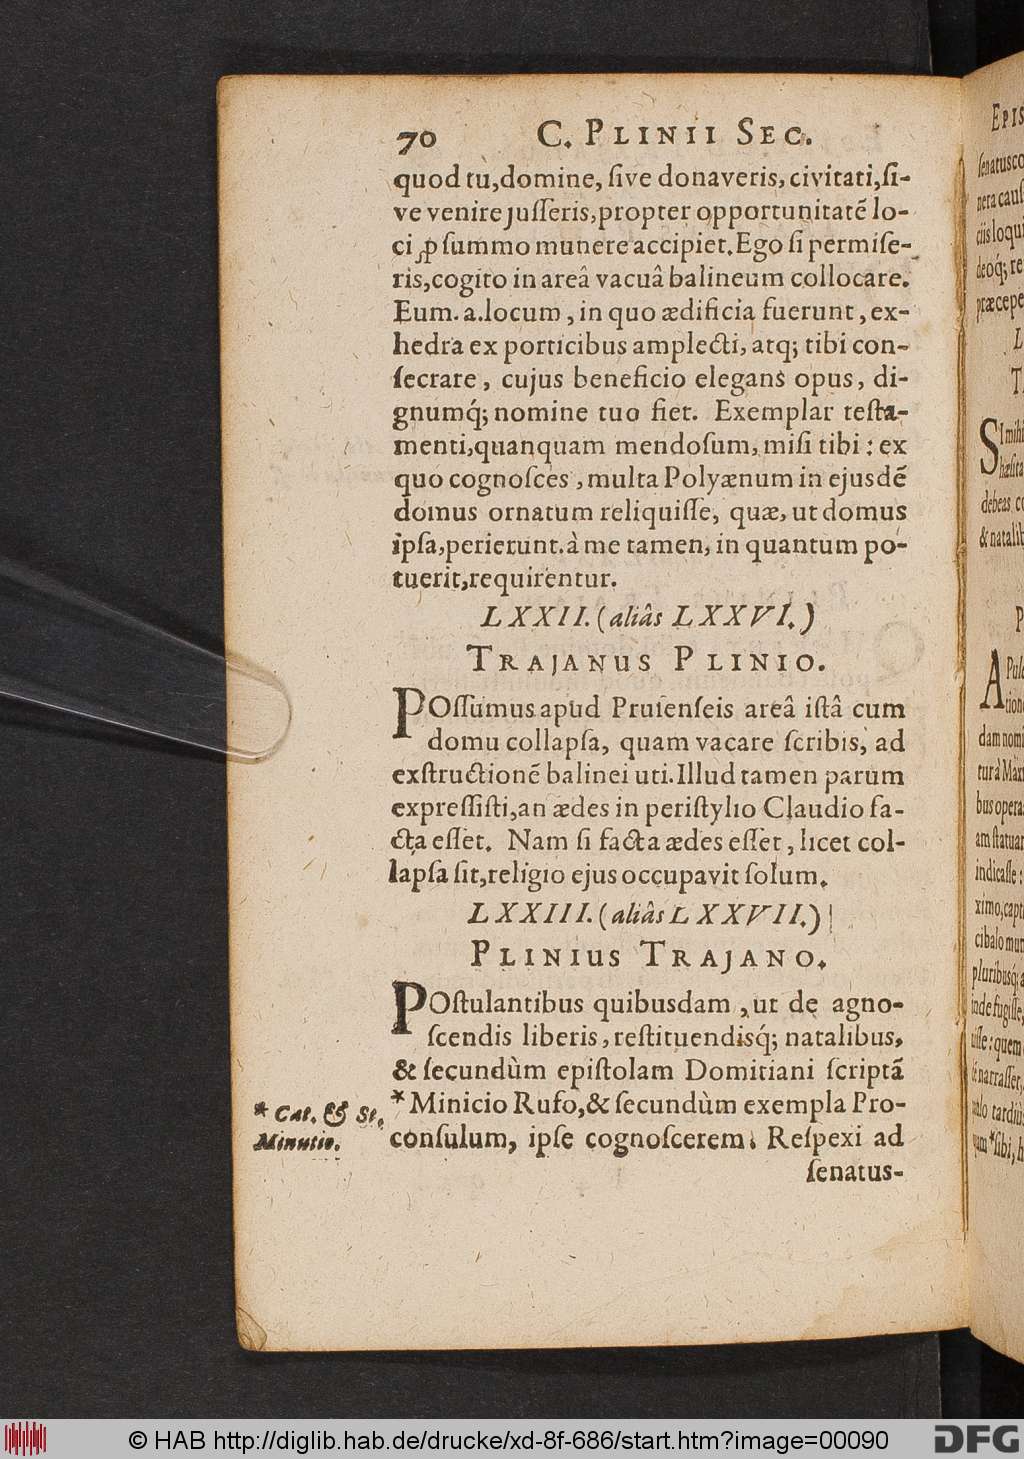 70 C. PLINII SEC.
quod tu, domine, ſive donaveris, civitati, ſi-
ve venire juſſeris, propter opportunitatẽ lo-
ci ꝓ ſummo munere accipiet. Ego ſi permiſe-
ris, cogito in areâ vacuâ balineum collocare.
Eum. a. locum, in quo ædificia fuerunt, ex-
hedra ex porticibus amplecti, atq; tibi con-
ſecrare, cujus beneficio elegans opus, di-
gnumq́; nomine tuo fiet. Exemplar teſta-
menti, quanquam mendoſum, miſi tibi: ex
quo cognoſces, multa Polyænum in ejusdẽ
domus ornatum reliquiſſe, quæ, ut domus
ipſa, perierunt. à me tamen, in quantum po-
tuerit, requirentur.
LXXII. (aliâs LXXVI.)
TRAJANUS PLINIO.
POſſumus apud Pruſenſeis areâ iſtâ cum
domu collapſa, quam vacare ſcribis, ad
exſtructionẽ balinei uti. Illud tamen parum
expreſſiſti, an ædes in periſtylio Claudio fa-
cta eſſet. Nam ſi facta ædes eſſet, licet col-
lapſa ſit, religio ejus occupavit ſolum.
LXXIII. (aliâs LXXVII.)
PLINIUS TRAJANO.
POſtulantibus quibusdam, ut de agno-
ſcendis liberis, reſtituendisq́; natalibus,
& ſecundùm epiſtolam Domitiani ſcriptã
* Minicio Rufo, & ſecundùm exempla Pro-
conſulum, ipſe cognoſcerem. Reſpexi ad
ſenatus-
* Cat. & St.
Minutio.
© HAB http://diglib.hab.de/drucke/xd-8f-686/start.htm?image=00090
DFG